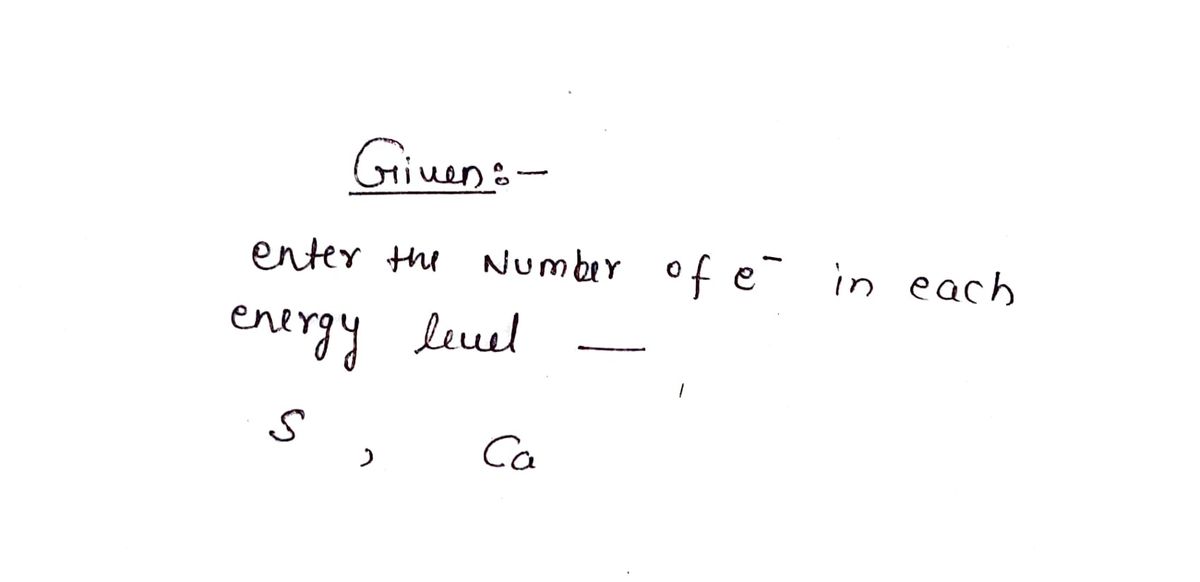 Given:-
enter the Number of e⁻ in each
energy level —
S , Ca